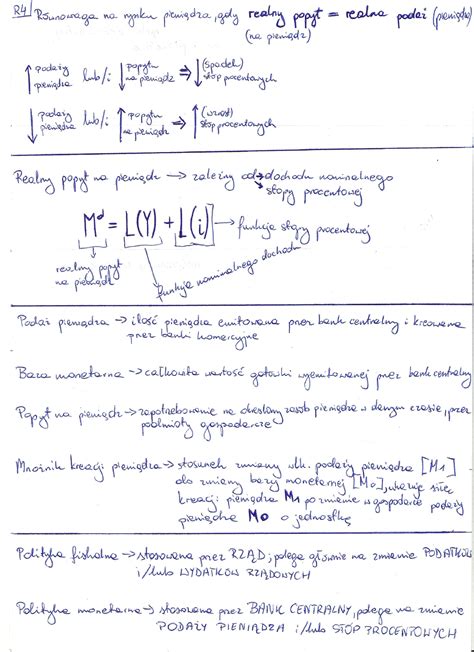 R4 Równowaga na rynku pieniądza, gdy realny popyt = realna podaż (pieniądza)
(na pieniądz)
↑ podaży pieniądza lub/i ↓ popytu na pieniądz ⇒ ↓ (spadek) stóp procentowych
↓ podaży pieniądza lub/i ↑ popytu na pieniądz ⇒ ↑ (wzrost) stóp procentowych
Realny popyt na pieniądz → zależny od → dochodu nominalnego
→ stopy procentowej
Mᵈ = L(Y) + L(i) → funkcja stopy procentowej
realny popyt
na pieniądz
funkcja nominalnego dochodu
Podaż pieniądza → ilość pieniądza emitowana przez bank centralny i kreowana
przez banki komercyjne
Baza monetarna → całkowita wartość gotówki wyemitowanej przez bank centralny
Popyt na pieniądz → zapotrzebowanie na określony zasób pieniądza w danym czasie, przez
podmioty gospodarcze
Mnożnik kreacji pieniądza → stosunek zmiany wlk. podaży pieniądza [M1]
do zmiany bazy monetarnej [M0], ukazuje siłę
kreacji pieniądza M1 po zmianie w gospodarce podaży
pieniądza M0 o jednostkę
Polityka fiskalna → stosowana przez RZĄD; polega głównie na zmianie PODATKÓW
i/lub WYDATKÓW RZĄDOWYCH
Polityka monetarna → stosowana przez BANK CENTRALNY, polega na zmianie
PODAŻY PIENIĄDZA i/lub STÓP PROCENTOWYCH